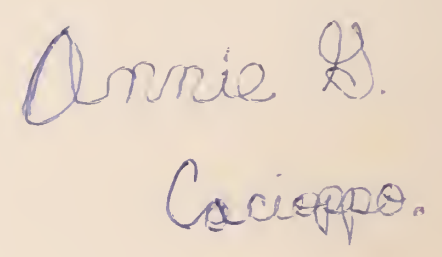 Annie G.
Cacioppo.